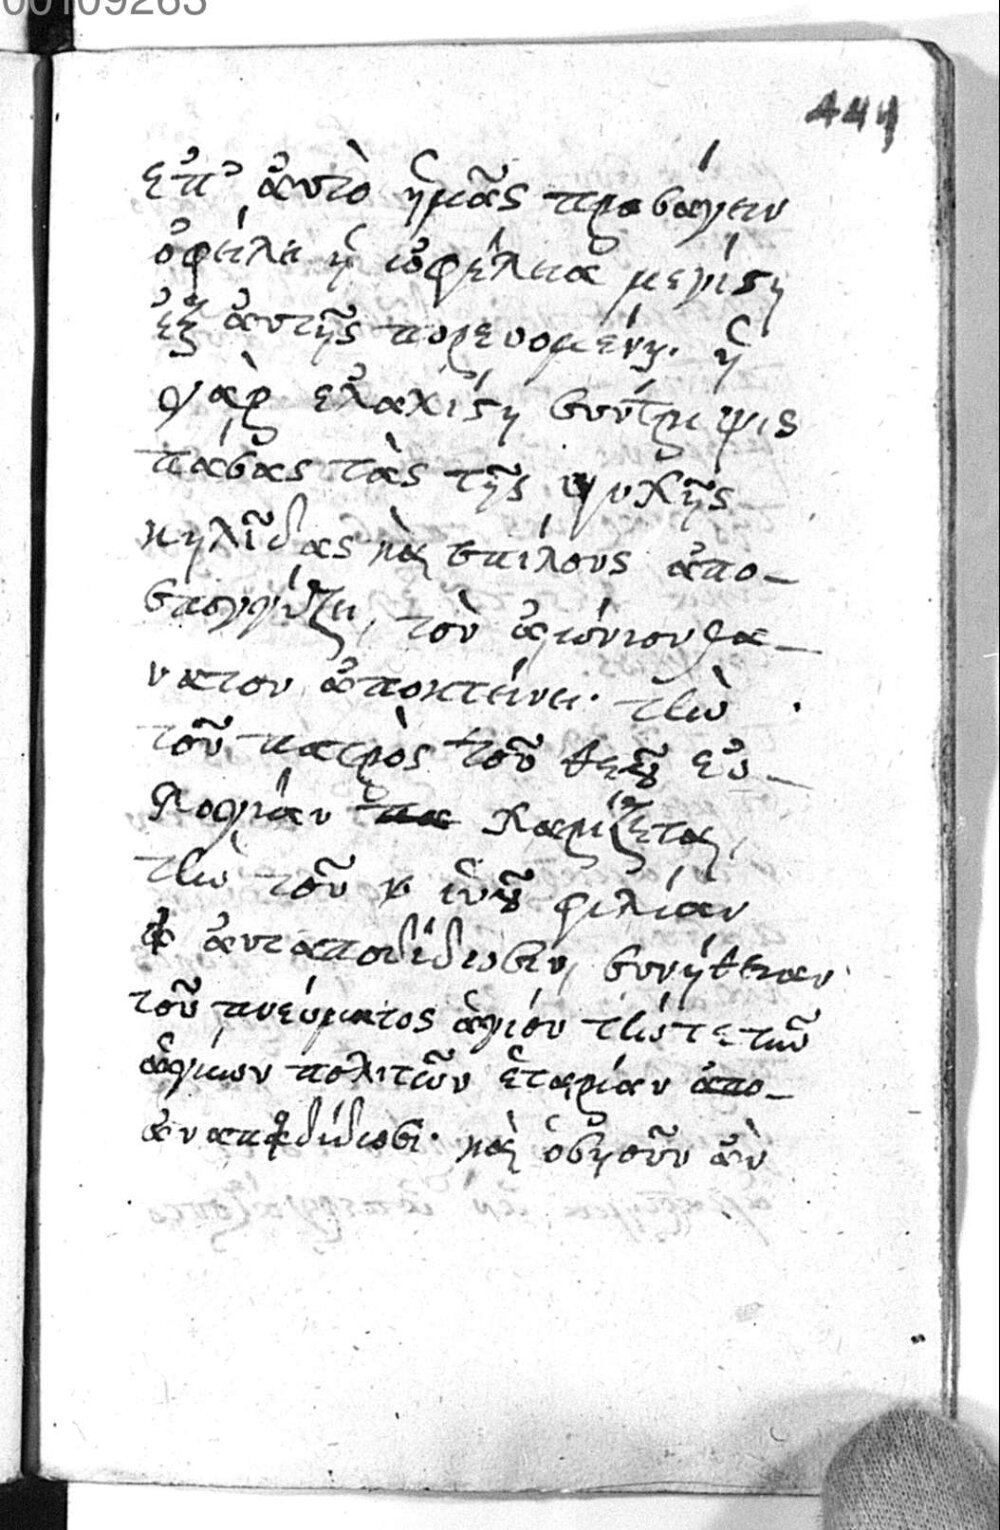 00109263
444
ἐπ' ἀυτὸ ἡμᾶς προσάγειν
ὀφείλει ἡ ὠφέλεια μεγίϛη
ἐξ ἀυτῆς πορευομένη. ἡ
γὰρ ἐλαχίϛη συντριψις
πάσας τὰς τῆς ψυχῆς
κηλῖδας καὶ σπίλους ἀπο-
σπογγίζει, τὸν ἀιώνιον θα-
νατον ἀποκτείνει. τὴν
τοῦ πατρὸς τοῦ θεοῦ ἐυ-
λογίαν χαρίζεται,
τὴν τοῦ ἰυ̅ φιλίαν
ἀνταποδίδωσιν, συνήθειαν
τοῦ πνέυματος ἁγίου τήν τε τῶν
ἁγίων πολιτῶν ἑταιρίαν ἀπο-
καὶ ὁσηοῦν ἂν